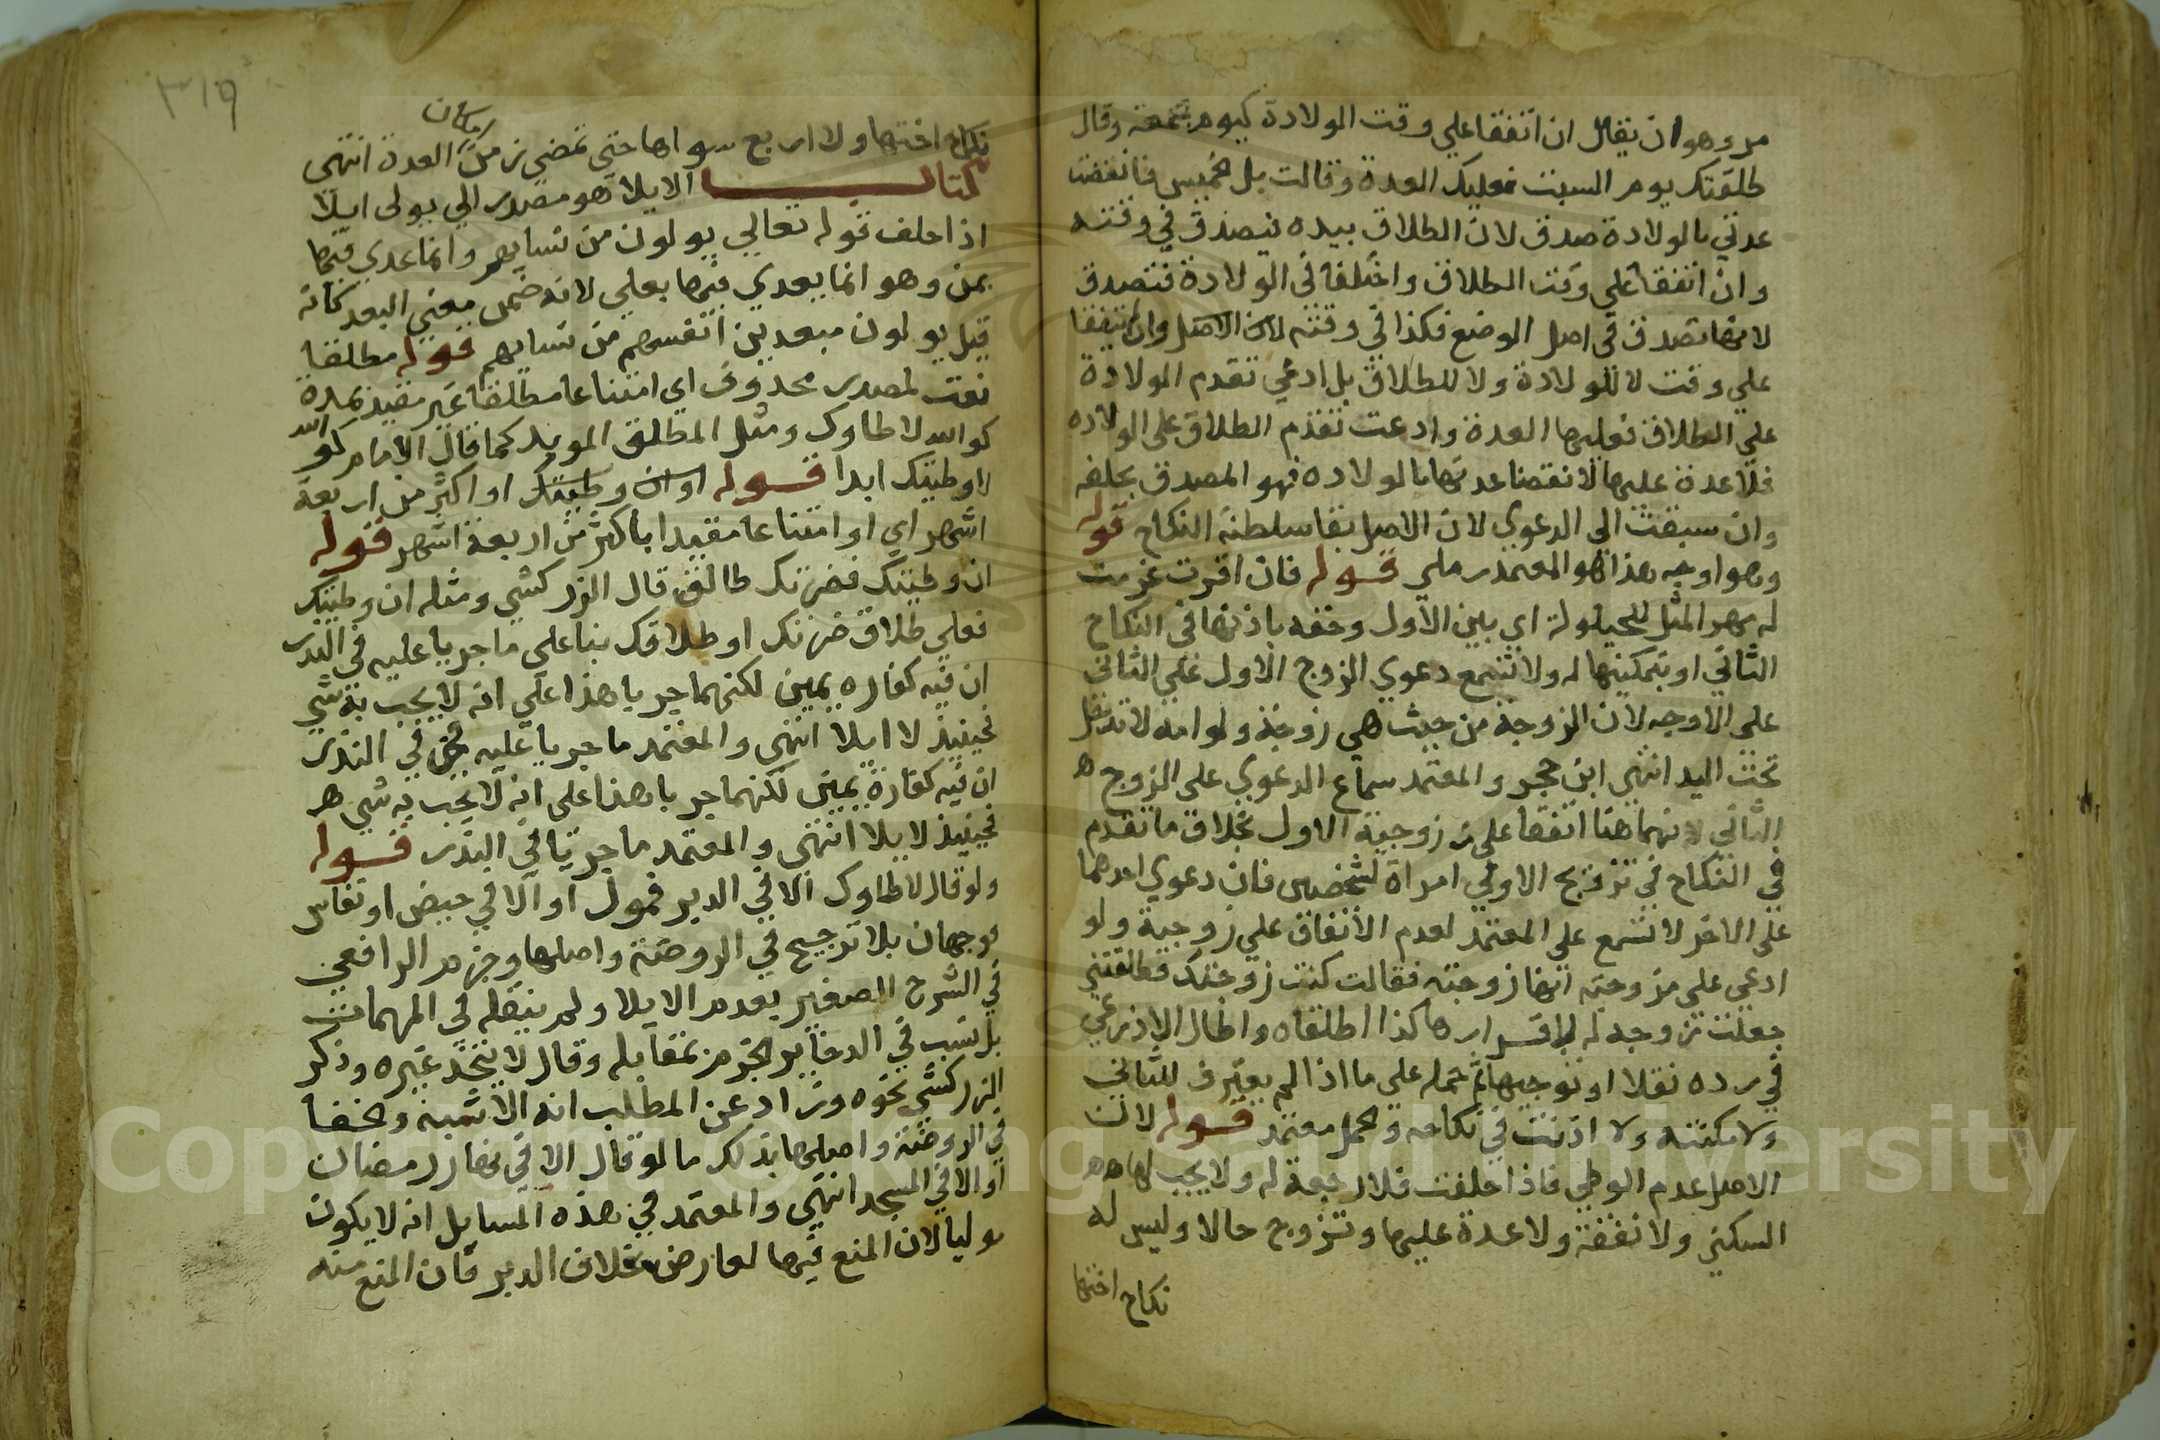 مر وهو ان يقال ان اتفقا علي وقت الولادة كيوم جمعة وقال
طلقتك يوم السبت فعليك العدة وقالت بل خميس فانقضت
عدتي بالولادة صدق لان الطلاق بيده فيصدق في وقته
وان اتفقا علي وقت الطلاق واختلفا في الولادة فتصدق
لانها تصدق في اصل الوضع فكذا في وقته وان لم يتفقا
علي وقت لا للولادة ولا للطلاق بل ادعي تقدم الولادة
علي الطلاق فعليها العدة وادعت تقدم الطلاق علي الولاده
فلا عدة عليها لانقضا عدتها بالولاده فهو المصدق بحلفه
وان سبقت الي الدعوي لان الاصل بقا سلطنة النكاح قوله
وهو اوجه هذا هو المعتمد رملي قوله فان اقرت غرمت
له مهر المثل للحيلولة اي بين الاول وحقه باذنها في النكاح
الثاني او بتمكينها له ولا تسمع دعوي الزوج الاول علي الثاني
علي الاوجه لان الزوجة من حيث هي زوجة ولو امه لا تدخل
تحت اليد انتهي ابن حجر والمعتمد سماع الدعوي علي الزوج ه
الثاني لانهما هنا اتفقا علي زوجية الاول بخلاف ما تقدم
في النكاح في تزويج الاولي امراة لشخصين فان دعوي احدهما
علي الاخر لا تسمع علي المعتمد لعدم الاتفاق علي زوجية ولو
ادعي علي مزوجة انها زوجته فقالت كنت زوجتك فطلقتني
جعلت زوجه له لاقرارها كذا اطلقاه واطال الاذرعي
في رده نقلا وتوجيها ثم حمله علي ما اذا لم يعترف للثاني
ولا مكنته ولا اذنت في نكاحه وحمل معتمد قوله لان
الاصل عدم الوطي فاذا حلفت فلا رجعة له ولا يجب لها
السكني ولا نفقة ولا عدة عليها وتزوج حالا وليس له
نكاح اختها
٣١٩
نكاح اختها ولا اربع سواها حتي تمضي زمن العدة انتهي
امكان
كتاب الايلا هو مصدر الي يولي ايلا
اذا حلف قوله تعالي يولون من نسايهم وانما عدي فيها
بمن وهو انما يعدي فيها بعلي لانه ضمن معني البعد كانه
قيل يولون مبعدين انفسهم من نسايهم قوله مطلقا
نعت لمصدر محذوف اي امتناعا مطلقا غير مقيد بمدة
كوالله لا طاوك ومثل المطلق الموبد كما قال الامام كوالله
لا وطيتك ابدا قوله او ان وطيتك او اكثر من اربعة
اشهر اي او امتناعا مقيدا باكثر من اربعة اشهر قوله
ان وطيتك فضرتك طالق قال الزركشي ومثله ان وطيتك
فعلي طلاق ضرتك او طلاقك بنا علي ما جريا عليه في النذر
ان فيه كفاره يمين لكنهما جريا هذا علي انه لا يجب به شي
فحينيذ لا ايلا انتهي والمعتمد ما جريا عليه في النذر
ان فيه كفارة يمين لكنهما جريا هذا علي انه لا يجب به شي هر
فحينيذ لا يلا انتهي والمعتمد ما جريا في النذر قوله
ولو قال لا طاوك الا في الدبر فمول او الا في حيض او نفاس
فوجهان بلا ترجيح في الروضة واصلها وجزم الرافعي
في الشرح الصغير بعدم الايلا ولم ينقله في المهمات
بل نسب في الدخاير الجزم بمقابله وقال لا يتجه غيره وذكر
الزركشي نحوه وزاد عن المطلب انه الاشبه والحقا
في الروضة واصلها بذلك ما لو قال الا في نهار رمضان
او الا في المسجد انتهي والمعتمد في هذه المسايل انه لا يكون
موليا لان المنع فيها لعارض بخلاف الدبر فان المنع منه
Copyright © King Saud University